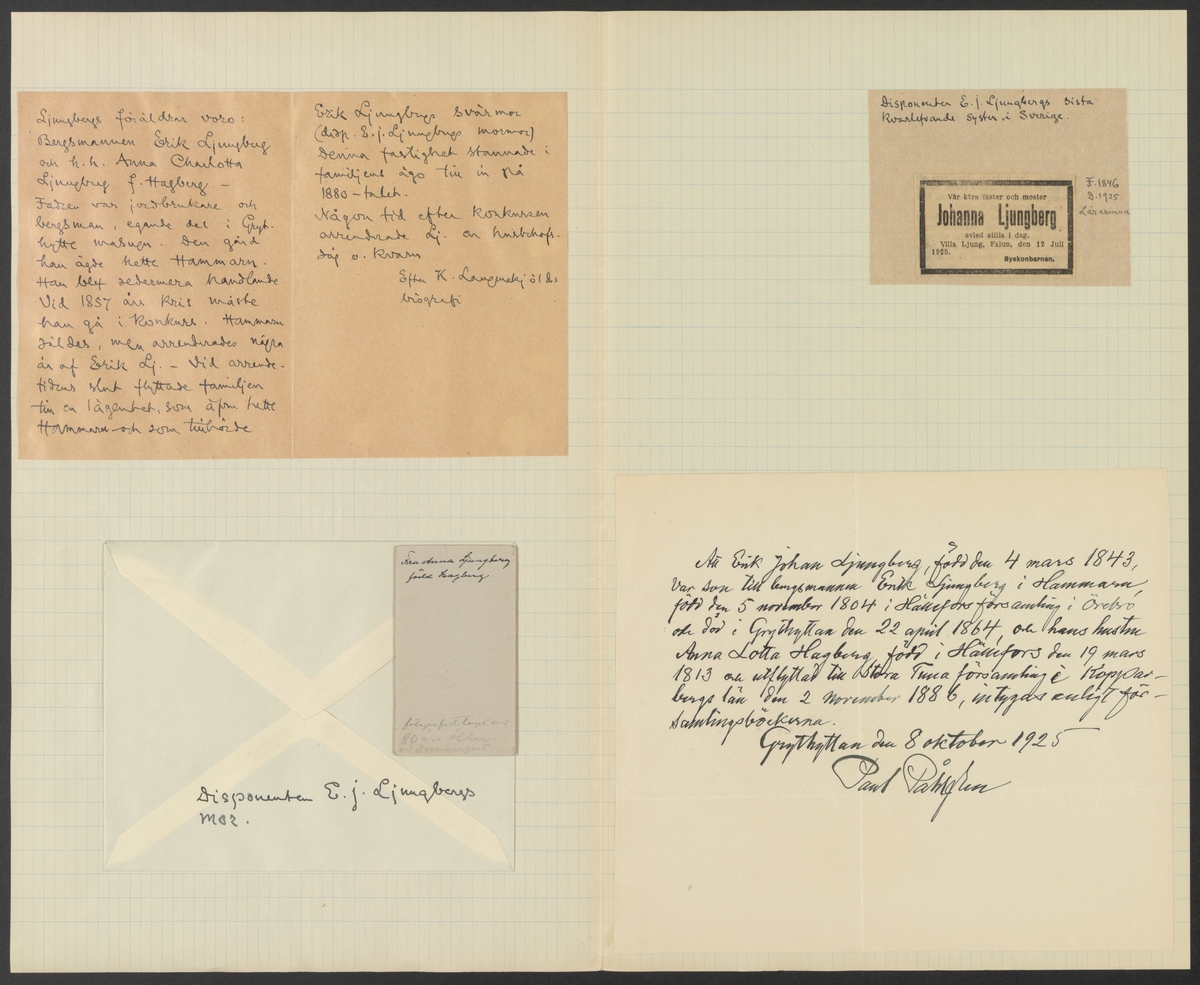 Ljungbergs föräldrar voro:
Bergsmannen Erik Ljungberg
och h. h. Anna Charlotta
Ljungberg f. Hagberg –
Fadren var jordbrukare och
bergsman, egande del i Gryt-
hytte masugn. Den gård
han ägde hette Hammarn.
Han blef sedermera handlande
Vid 1857 års kris måste
han gå i konkurs. Hammarn
såldes, men arrenderades några
år af Erik Lj. – Vid arrende-
tidens slut flyttade familjen
till en lägenhet, som äfven hette
Hammarn – och som tillhörde
Erik Ljungbergs svärmor
(disp. E. J. Ljungbergs mormor)
Denna fastighet stannade i
familjens ägo till in på
1880-talet.
Någon tid efter konkursen
arrenderade Lj. en husbehofs-
såg o. kvarn
Efter K.
biografi
Disponenten E. J. Ljungbergs sista
kvarlefvande syster i Sverige.
Vår kära faster och moster
Johanna Ljungberg
avled stilla i dag.
Villa Ljung, Falun, den 12 Juli
1925.
Syskonbarnen.
F. 1846
D. 1925
Lärarinna
Fru Anna Ljungberg
född Hagberg
80 års ålder
Disponenten E. J. Ljungbergs
mor.
Att Erik Johan Ljungberg, född den 4 mars 1843,
var son till bergsmannen Erik Ljungberg i Hammarn,
född den 5 november 1804 i Hällefors församling i Örebro
och död i Grythyttan den 22 april 1864, och hans hustru
Anna Lotta Hagberg, född i Hällefors den 19 mars
1813 och utflyttad till Stora Tuna församling i Koppar-
bergs län den 2 november 1886, intygas enligt för-
samlingsböckerna.
Grythyttan den 8 oktober 1925
Paul